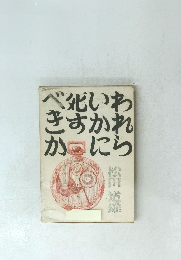 われら
いかに
死す
べきか
松田 道雄